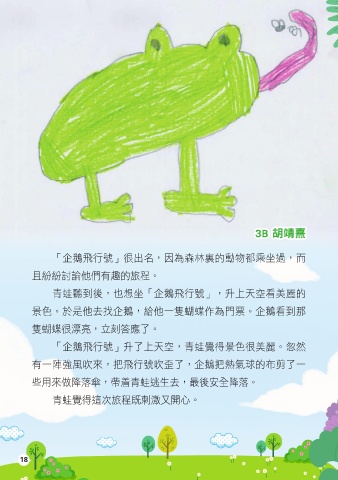 3B 胡靖熹
「企鵝飛行號」很出名，因為森林裏的動物都乘坐過，而
且紛紛討論他們有趣的旅程。
青蛙聽到後，也想坐「企鵝飛行號」，升上天空看美麗的
景色。於是他去找企鵝，給他一隻蝴蝶作為門票。企鵝看到那
隻蝴蝶很漂亮，立刻答應了。
「企鵝飛行號」升了上天空，青蛙覺得景色很美麗。忽然
有一陣強風吹來，把飛行號吹歪了，企鵝把熱氣球的布剪了一
些用來做降落傘，帶着青蛙逃生去，最後安全降落。
青蛙覺得這次旅程既刺激又開心。
18